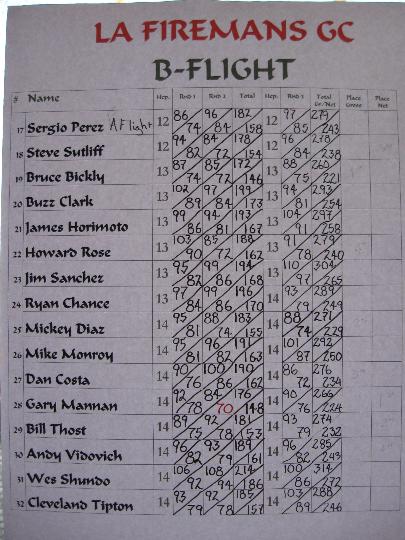 LA FIREMANS GC
B-FLIGHT
# Name Hcp. Rnd 1 Rnd 2 Total Hcp. Rnd 3 Total Gr/Net Place Gross Place Net
17 Sergio Perez A Flight 12 86 74 96 84 182 158 12 97 85 279 243
18 Steve Sutliff 12 94 82 84 72 178 154 12 96 84 278 238
19 Bruce Bickly 13 87 74 85 72 172 146 13 88 75 260 221
20 Buzz Clark 13 102 89 97 84 199 173 13 94 81 293 254
21 James Horimoto 13 99 86 94 81 193 167 13 104 91 297 258
22 Howard Rose 13 103 90 85 72 188 162 13 91 78 279 240
23 Jim Sanchez 13 95 82 99 86 194 168 13 110 97 304 265
24 Ryan Chance 13 97 84 99 86 196 170 14 93 79 289 249
25 Mickey Diaz 14 95 81 88 74 183 155 14 88 74 271 229
26 Mike Monroy 14 95 81 96 82 191 163 14 101 87 292 250
27 Dan Costa 14 90 76 100 86 190 162 14 86 72 276 234
28 Gary Mannan 14 92 78 84 70 176 148 14 90 76 266 224
29 Bill Thost 14 89 75 92 78 181 153 14 93 79 274 232
30 Andy Vidovich 14 96 82 93 79 189 161 14 96 82 285 243
31 Wes Shundo 14 106 92 108 94 214 186 14 100 86 314 272
32 Cleveland Tipton 14 93 79 92 78 185 157 14 103 89 288 246